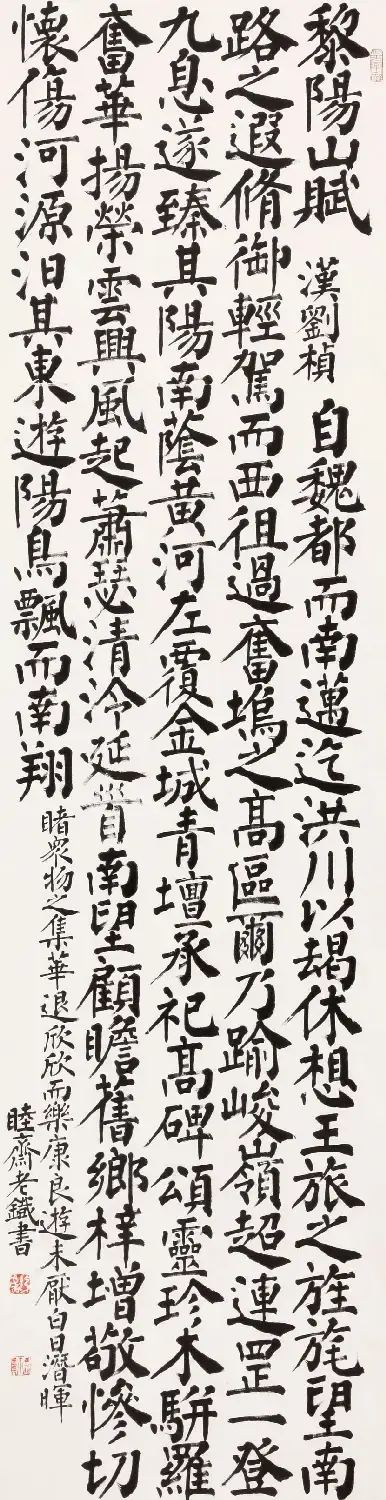 黎陽山賦 漢劉楨 自魏都而南邁迄洪川以朅休想王旅之旌旄望南
路之遐脩御輕駕而西徂過奮塢之高區爾乃踰峻嶺超連罡一登
九息遂臻其陽南蔭黃河左覆金城青壇承祀高碑頌靈珍木駢羅
奮華揚榮雲興風起蕭瑟清泠延首南望顧瞻舊鄉梓增敬慘切
懷傷河源汩其東遊陽鳥飄而南翔
睹眾物之集華退欣欣而樂康良遊未厭白日潛暉
睦齋老鐵書